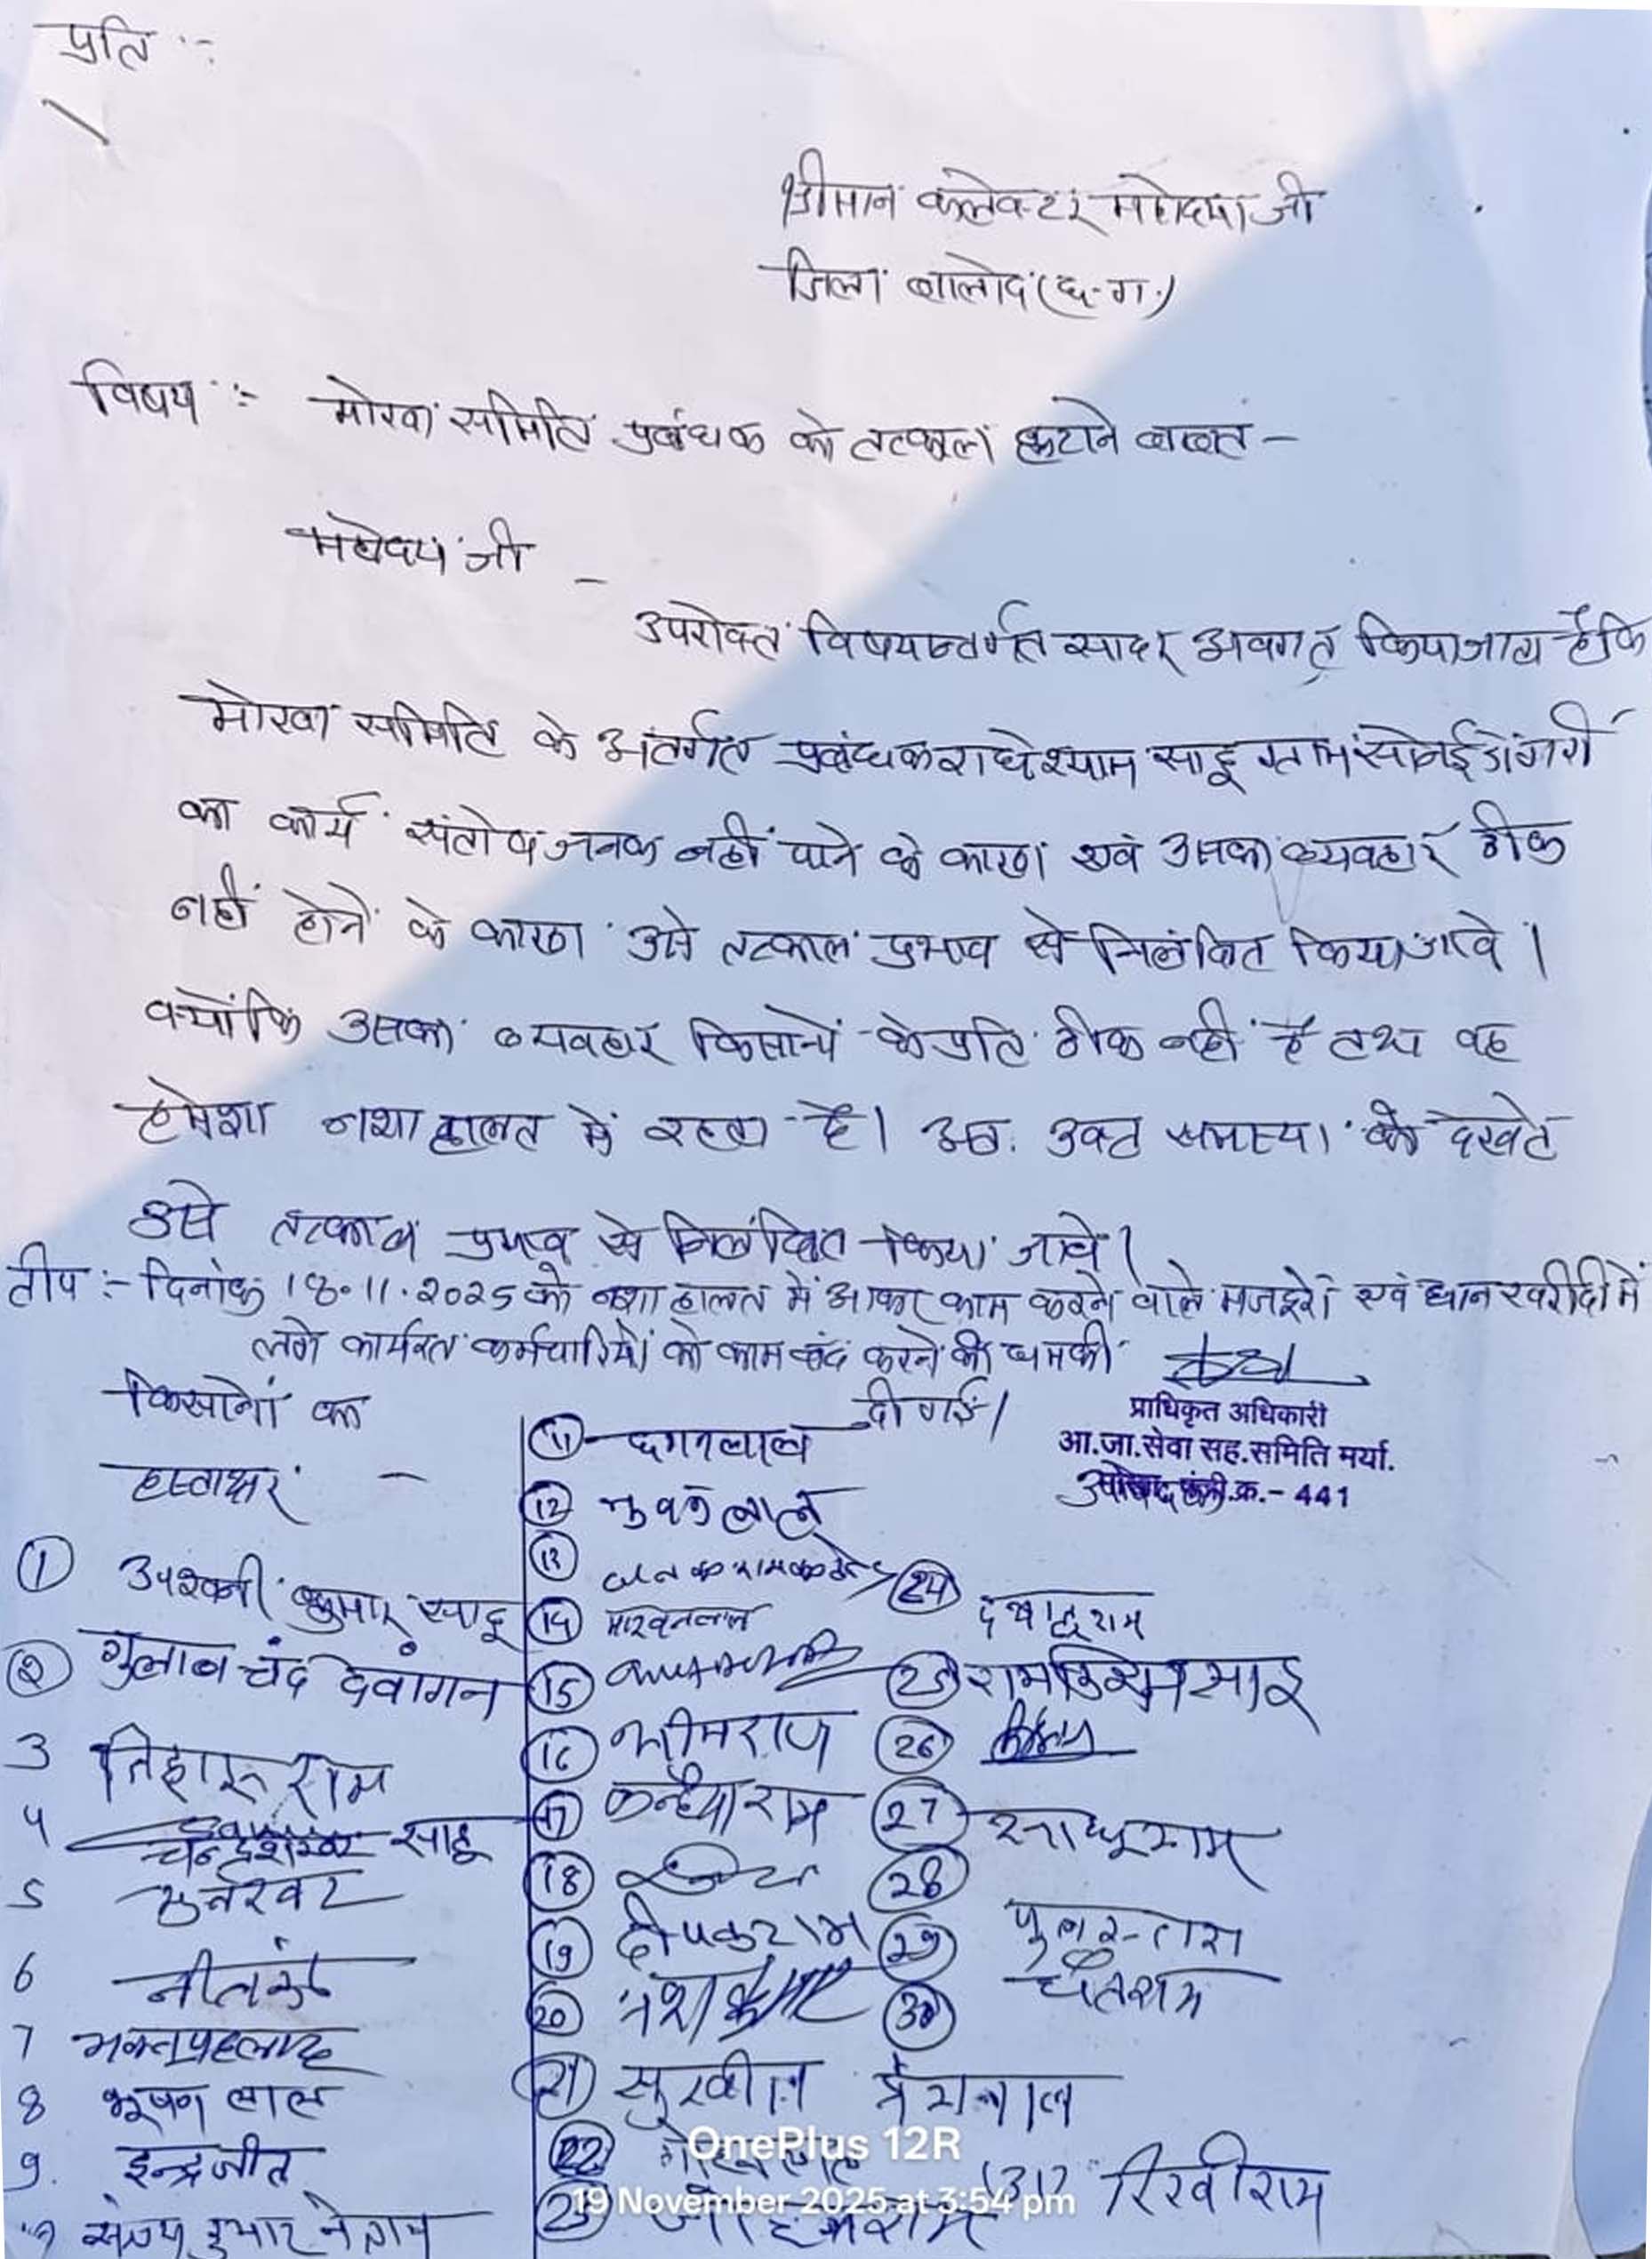 प्रति :-
श्रीमान कलेक्टर महोदया जी
जिला बालोद (छ.ग.)
विषय :- मोखा समिति प्रबंधक को तत्काल हटाने बाबत -
महोदय जी -
उपरोक्त विषयान्तर्गत सादर अवगत किया जाता है कि
मोखा समिति के अंतर्गत प्रबंधक राधेश्याम साहू ग्राम सोनईडोंगरी
का कार्य संतोषजनक नहीं पाने के कारण एवं उसका व्यवहार ठीक
नहीं होने के कारण उसे तत्काल प्रभाव से निलंबित किया जावे ।
क्योंकि उसका व्यवहार किसानों के प्रति ठीक नहीं है तथा वह
हमेशा नशा हालत में रहता है। अतः उक्त समस्या को देखते
उसे तत्काल प्रभाव से निलंबित किया जावे।
टीप :- दिनांक 18.11.2025 को नशा हालत में आकर काम करने वाले मजदूरों एवं धान खरीदी में
लगे कार्यरत कर्मचारियों को काम बंद करने की धमकी
दी गई।
प्राधिकृत अधिकारी
आ.जा.सेवा सह.समिति मर्या.
पंजी.क्र.- 441
किसानों का
हस्ताक्षर -
① अश्वनी कुमार साहू
② गुलाब चंद देवांगन
3 निहारु राम
4 साहू
5
6
7 भक्तप्रहलाद
8 भूषण लाल
9. इन्द्रजीत
संजय कुमार नेताम
⑪ छगनलाल
⑫ भुवन लाल
⑬
⑭ माखनलाल
⑮
⑯ भीमराज
⑰ कन्हैया राम
⑱
⑲ दीपक राम
⑳
㉑ सुखीत
㉒
㉓
㉔ दयालु राम
㉕ साहू
㉖
㉗ साधुराम
㉘
㉙
㉚ चेतराम
प्रेमलाल
(31) रिखीराम
OnePlus 12R
19 November 2025 at 3:54 pm